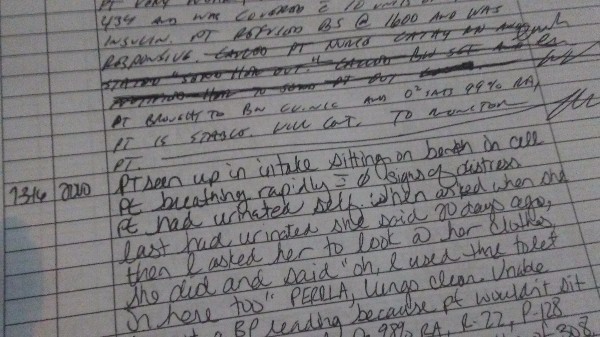 PT VERY
434 AND WAS COVERED C 10 UNITS OF
INSULIN. PT REFUSED BS @ 1600 AND WAS
RESPONSIVE.
PT BROUGHT TO BW CLINIC AND O² SATS 99% RA,
PT IS STABLE. WILL CONT. TO MONITOR
PT
7314 2020 PT seen up in intake sitting on bench in cell
pt breathing rapidly c̄ ∅ signs of distress
pt had urinated self. When asked when she
last had urinated she said 20 days ago,
then I asked her to look @ her clothes
she did and said "oh, I used the toilet
in here too" PERRLA, lungs clear. Unable
a BP reading because pt wouldn't sit
98% RA, R-22, P-128
of 308,